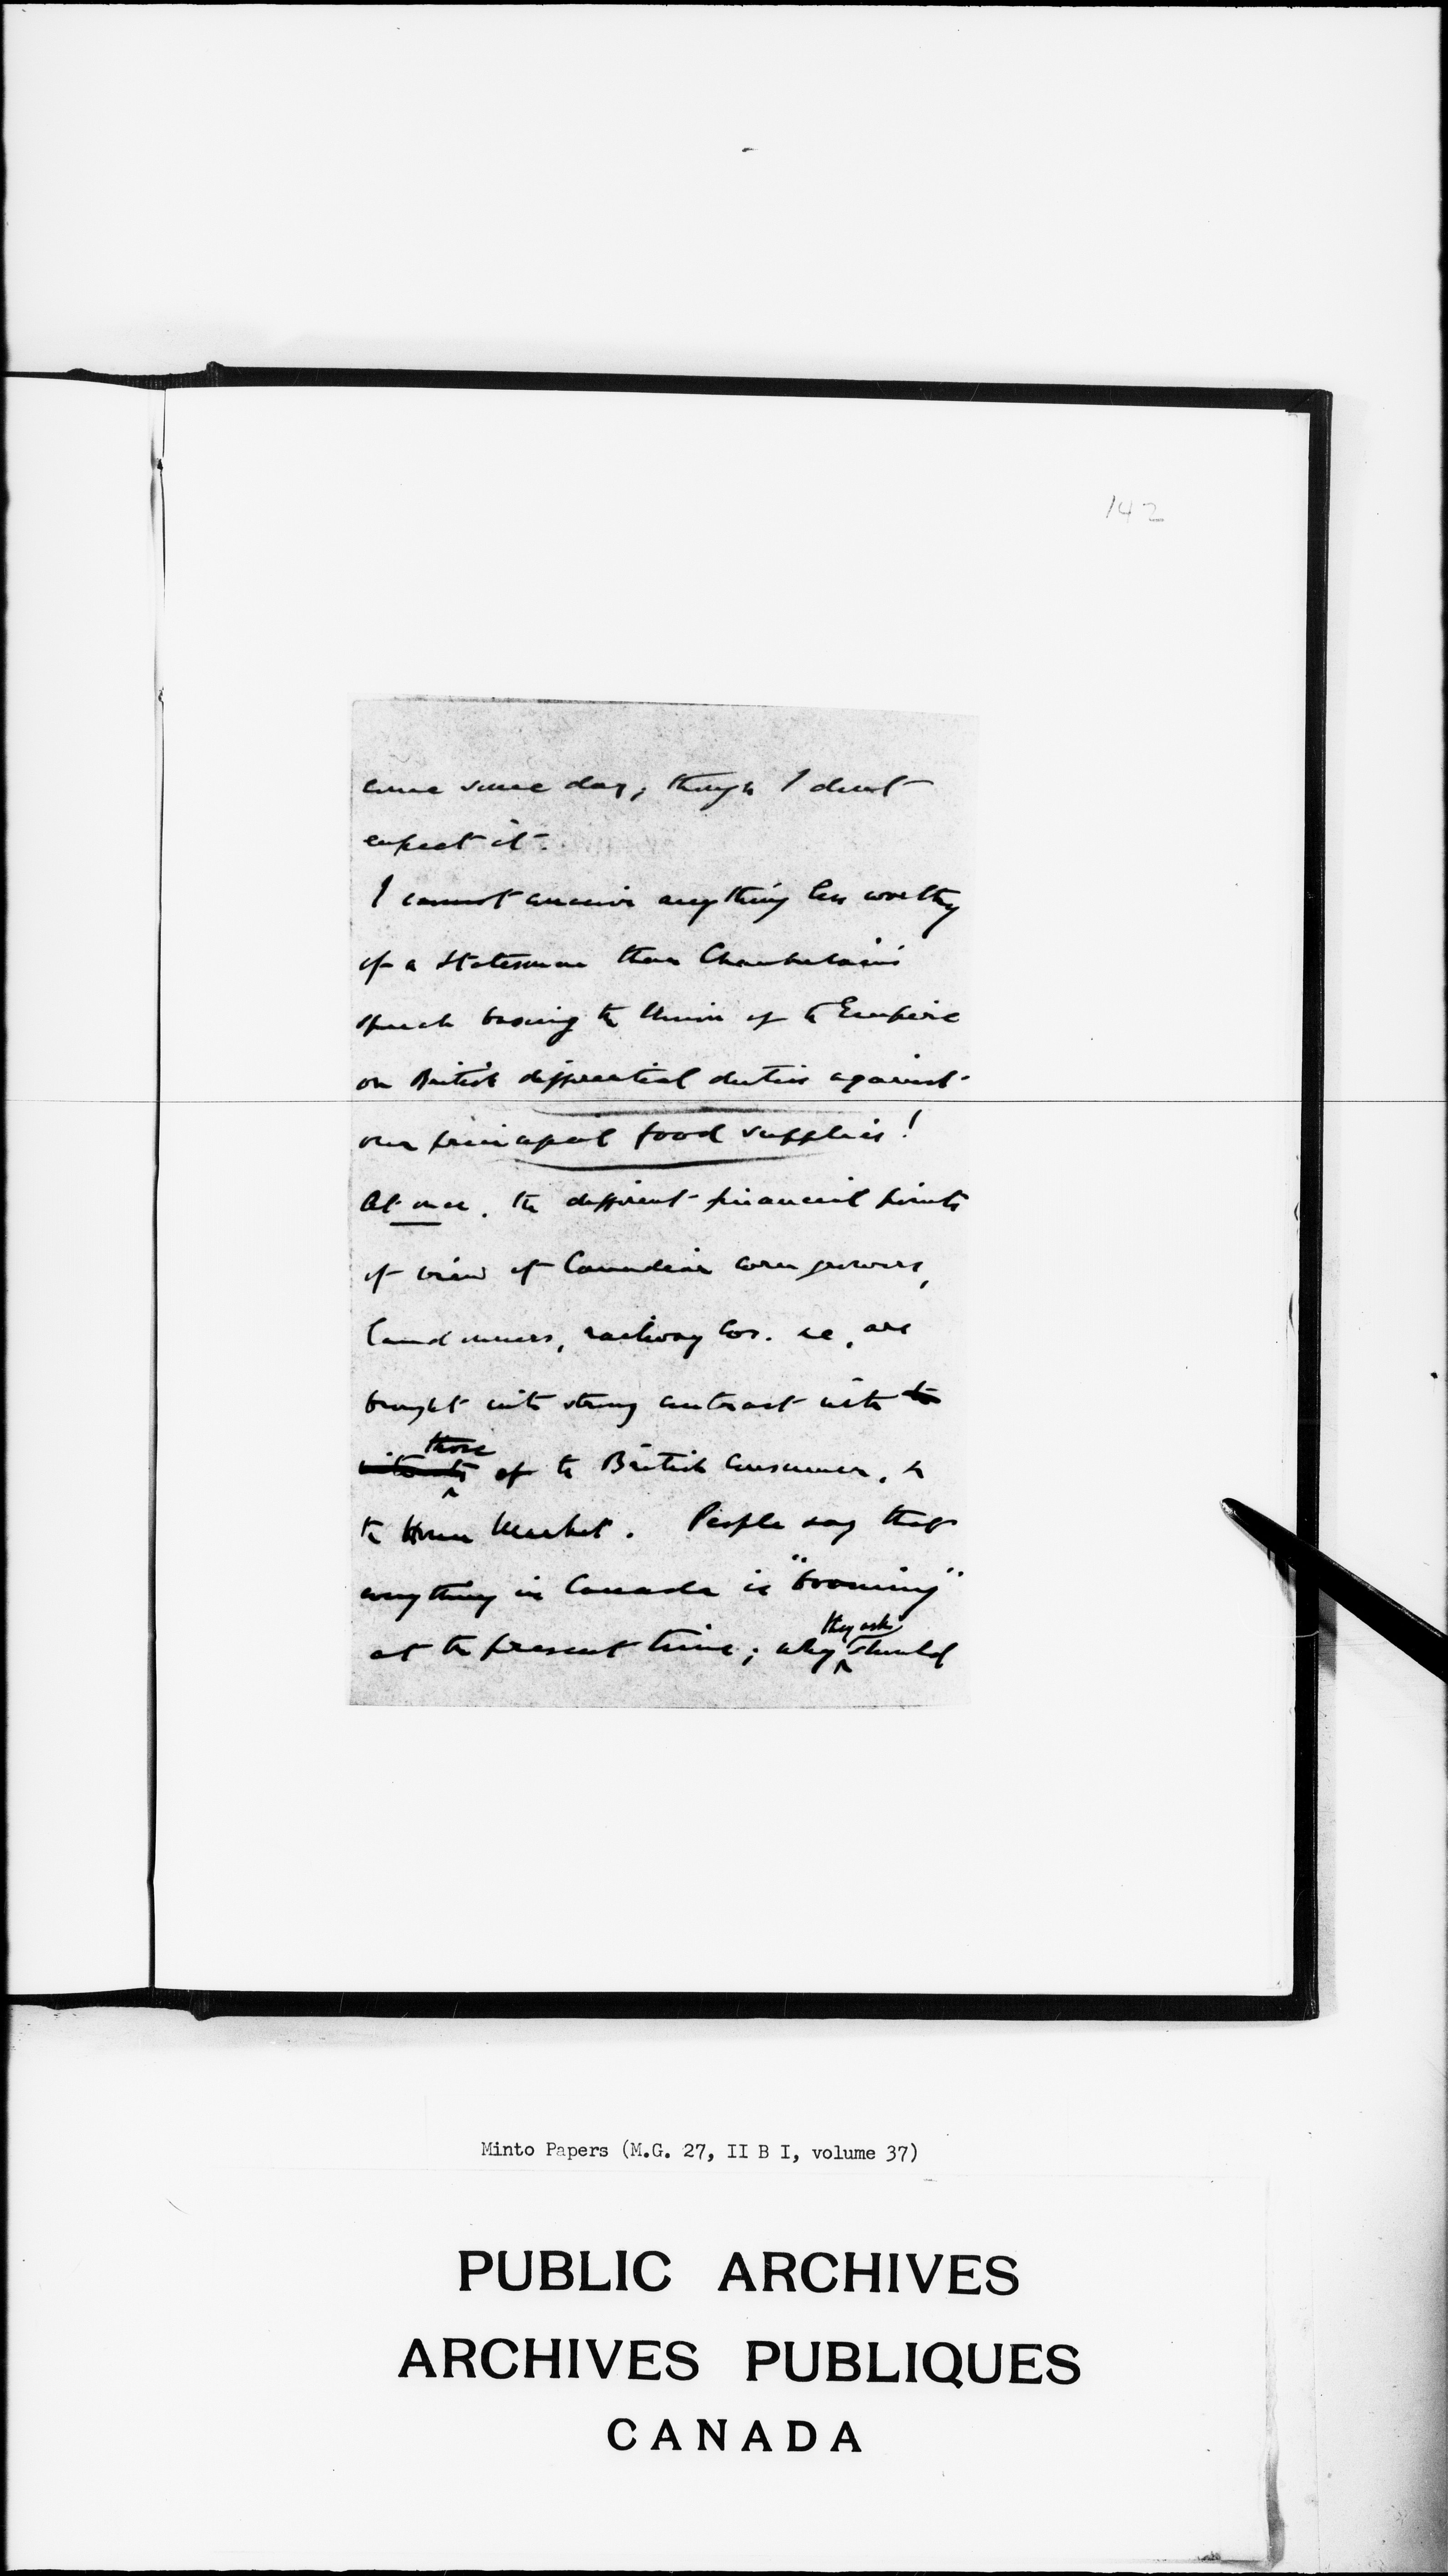 142
come some day, though I don't
expect it.
I cannot conceive anything less worthy
of a Statesman than Chamberlain's
speech basing the Union of the Empire
on British differential duties against
our principal food supplies!
At once, the different financial points
of view of Canadian corn growers,
landowners, railway Cos. &c, are
brought into strong contrast with the
those
of the British Consumer, &
the Home Market. People say that
everything in Canada is "booming"
they ask
at the present time; why should
Minto Papers (M.G. 27, II B I, volume 37)
PUBLIC ARCHIVES
ARCHIVES PUBLIQUES
CANADA